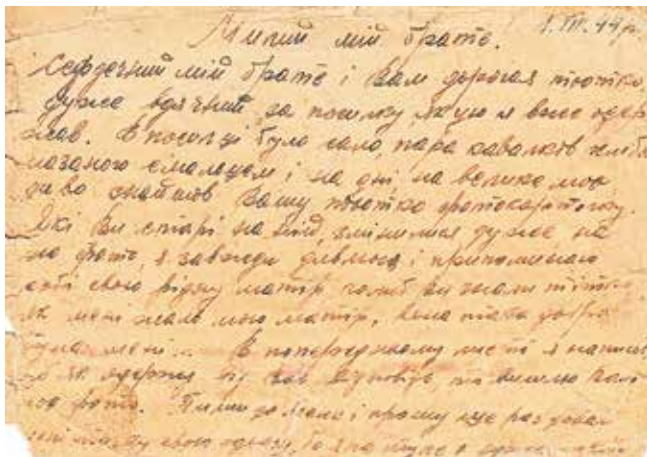 1. III. 44 р.
Милий мій брате.
Сердечний мій брате і вам дорогая тьотко,
дуже вдячний за посилку якую я вже одер
жав. В посилці було сало, пара кавалків хліба
мазаного смальцем і на дні, на велике моє
диво знайшов вашу тьотко фотокарточку.
Які Ви старі на ній, змінились дуже, на
на фото, я завжди дивлюсь і припоминаю
собі свою рідну матір
як мені жаль мою матір, вона така добра
була мені. В попередньому листі я написав
що як одержу від вас відповідь, то вишлю
фото. Пиши до мене і прошу ще раз
мені свою